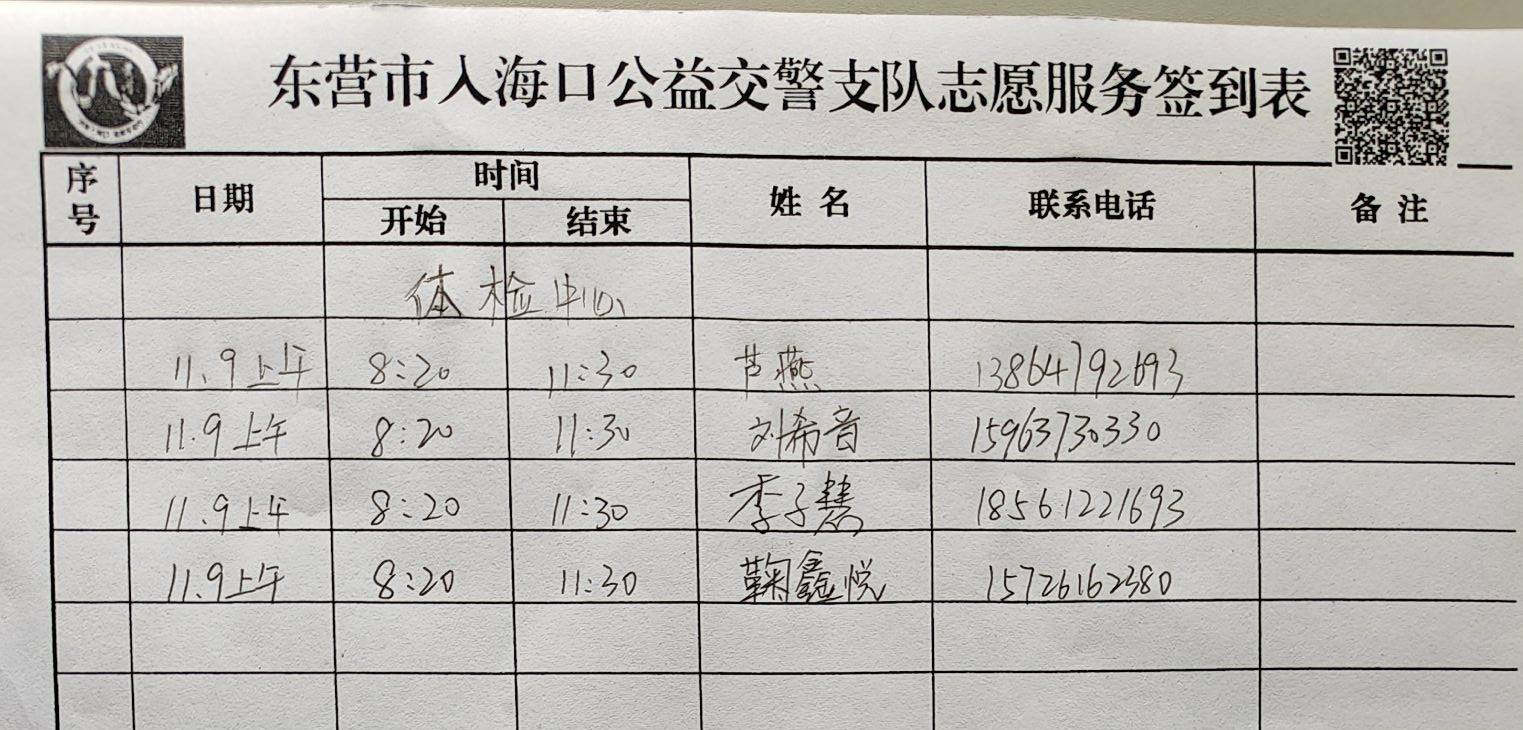 东营市入海口公益交警支队志愿服务签到表
序号 日期 时间 姓名 联系电话 备注
开始 结束
体检中心
11.9上午 8:20 11:30 芦燕 13864792693
11.9上午 8:20 11:30 刘希音 15963730330
11.9上午 8:20 11:30 李子慧 18561221693
11.9上午 8:20 11:30 鞠鑫悦 15726162380